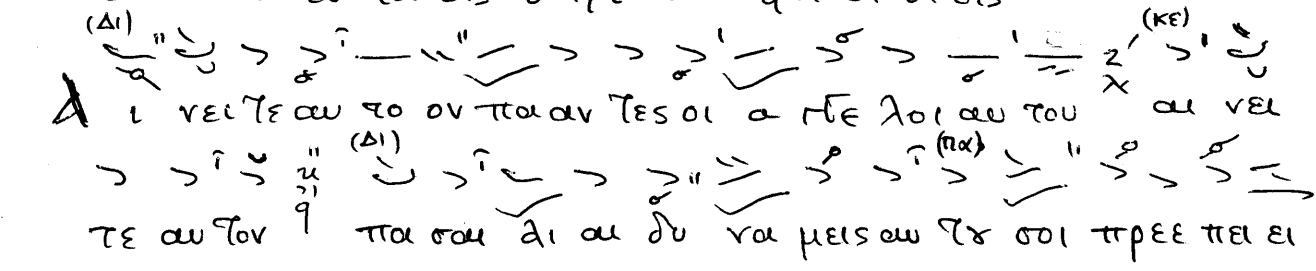 (Δι) (κε)
Α ι νει τε αυ το ον πα αν τες οι α γγε λοι αυ του αι νει
(Δι) (πα)
τε αυ τον πα σαι αι αι δυ να μεις αυ τȣ σοι πρε ε πει ει